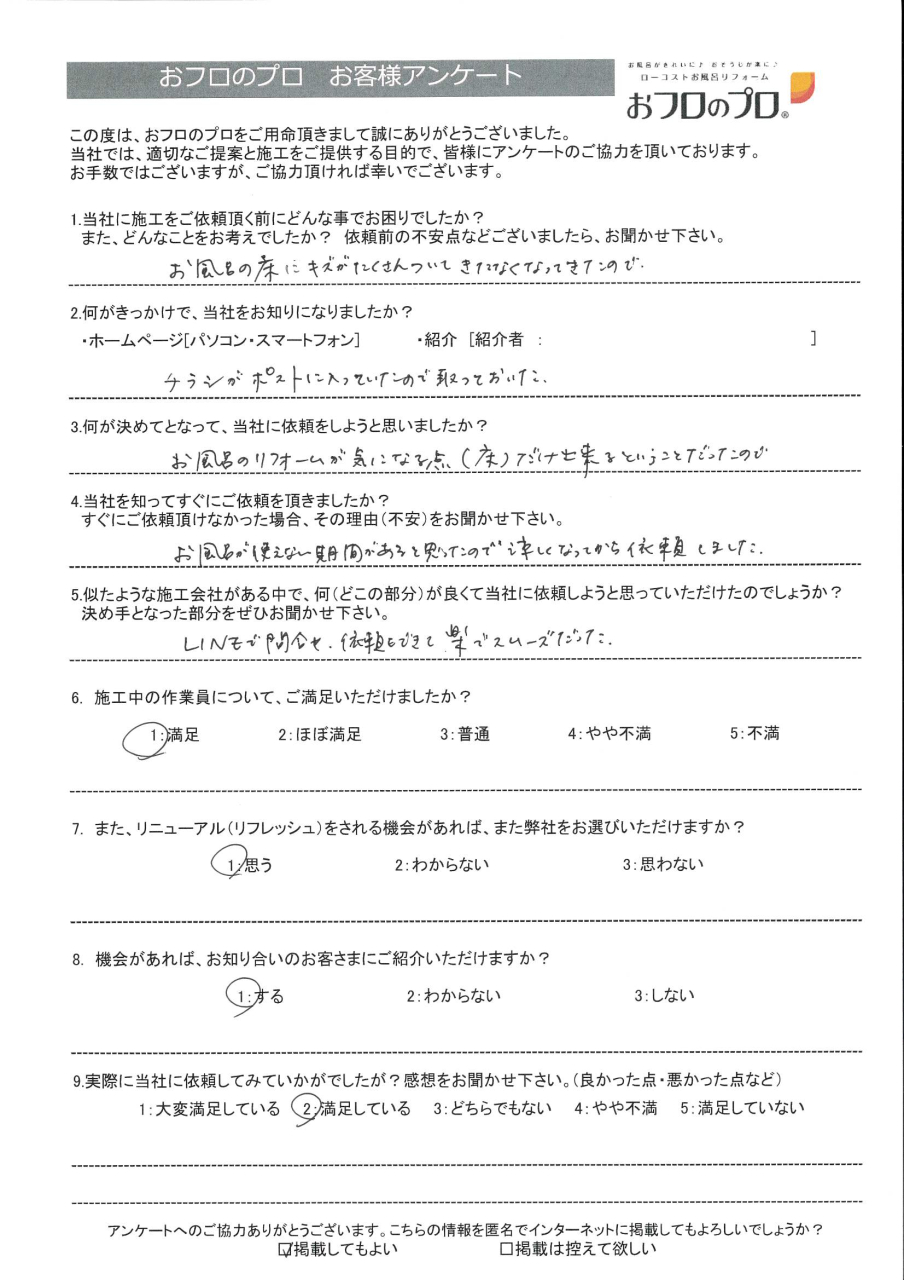 おフロのプロ　お客様アンケート
お風呂がきれいに♪ おそうじが楽に♪
ローコストお風呂リフォーム
おフロのプロ®
この度は、おフロのプロをご用命頂きまして誠にありがとうございました。
当社では、適切なご提案と施工をご提供する目的で、皆様にアンケートのご協力を頂いております。
お手数ではございますが、ご協力頂ければ幸いでございます。
1.当社に施工をご依頼頂く前にどんな事でお困りでしたか？
また、どんなことをお考えでしたか？ 依頼前の不安点などございましたら、お聞かせ下さい。
お風呂の床にキズがたくさんついてきたなくなってきたので.
2.何がきっかけで、当社をお知りになりましたか？
・ホームページ[パソコン・スマートフォン]　・紹介 [紹介者 ：　]
チラシがポストに入っていたので取っておいた.
3.何が決めてとなって、当社に依頼をしようと思いましたか？
お風呂のリフォームが気になる点(床)だけ出来るということだったので
4.当社を知ってすぐにご依頼を頂きましたか？
すぐにご依頼頂けなかった場合、その理由(不安)をお聞かせ下さい。
お風呂が使えない期間があると思ったので涼しくなってから依頼しました.
5.似たような施工会社がある中で、何(どこの部分)が良くて当社に依頼しようと思っていただけたのでしょうか？
決め手となった部分をぜひお聞かせ下さい。
LINEで問合せ、依頼もできて楽でスムーズだった.
6. 施工中の作業員について、ご満足いただけましたか？
1:満足　2:ほぼ満足　3:普通　4:やや不満　5:不満
7. また、リニューアル(リフレッシュ)をされる機会があれば、また弊社をお選びいただけますか？
1:思う　2:わからない　3:思わない
8. 機会があれば、お知り合いのお客さまにご紹介いただけますか？
1:する　2:わからない　3:しない
9.実際に当社に依頼してみていかがでしたが？感想をお聞かせ下さい。(良かった点・悪かった点など)
1:大変満足している　2:満足している　3:どちらでもない　4:やや不満　5:満足していない
アンケートへのご協力ありがとうございます。こちらの情報を匿名でインターネットに掲載してもよろしいでしょうか？
☑掲載してもよい　□掲載は控えて欲しい